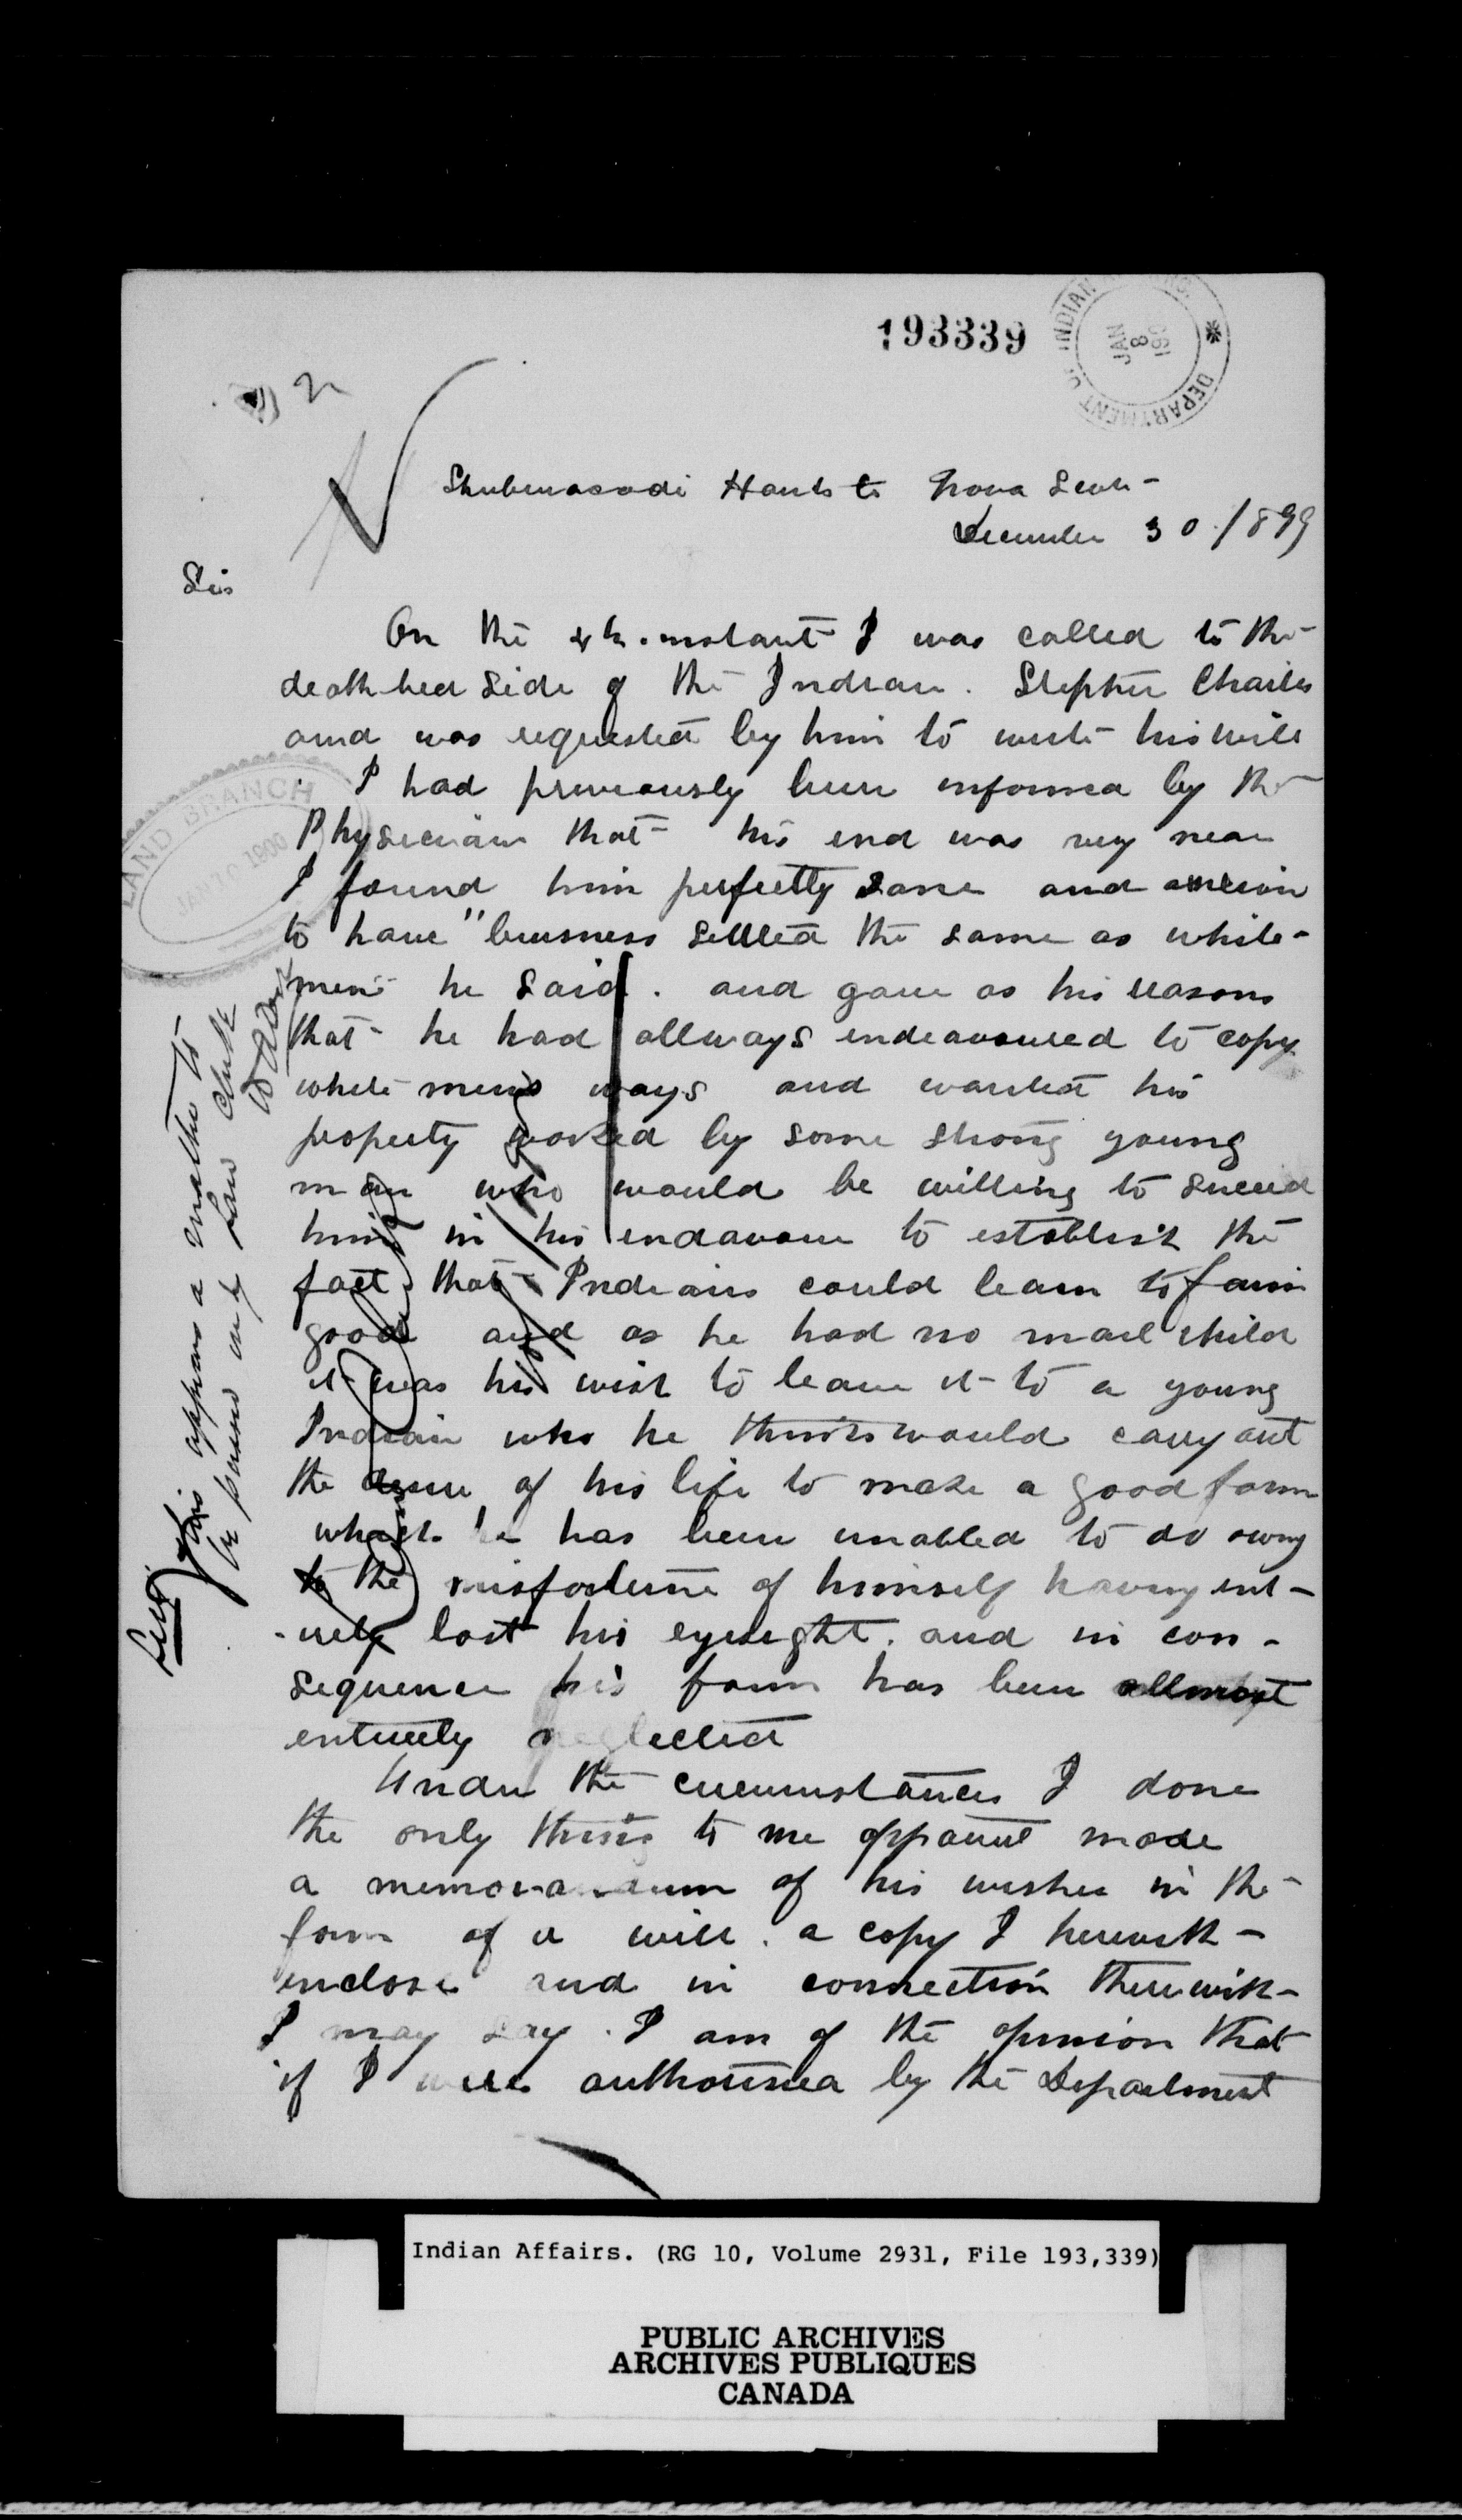 193339
DEPARTMENT OF INDIAN
JAN 8 190
2
Shubenacadie Hants Co Nova Scotia
December 30/1899
Sir
On the 4th instant I was called to the
death bed side of the Indian. Stephen Charles
and was requested by him to write his will
I had previously been informed by the
Physician that his end was very near
I found him perfectly sane and
to have "business settled the same as white
men he said. and gave as his reasons
that he had allways endeavoured to copy
white mens ways and wanted his
property worked by some strong young
man who would be willing to succeed
him in his endavour to establish the
fact that Indians could learn to farm
good and as he had no mail child
it was his wish to leave it to a young
Indian who he thinks would carry out
the desire of his life to make a good farm
which he has been unabled to do owing
to the misfortune of himself having ent-
-irely lost his eyesight. and in con-
sequence his farm has been allmost
entirely neglected
Under the circumstances I done
the only thing to me apparent made
a memorandum of his wishes in the
form of a will. a copy I herewith
enclose and in connection therewith
I may say. I am of the opinion that
if I were authorised by the Department
LAND BRANCH
JAN 10 1900
This appears a matter to
be passed on by Law Clerk
Indian Affairs. (RG 10, Volume 2931, File 193,339)
PUBLIC ARCHIVES
ARCHIVES PUBLIQUES
CANADA